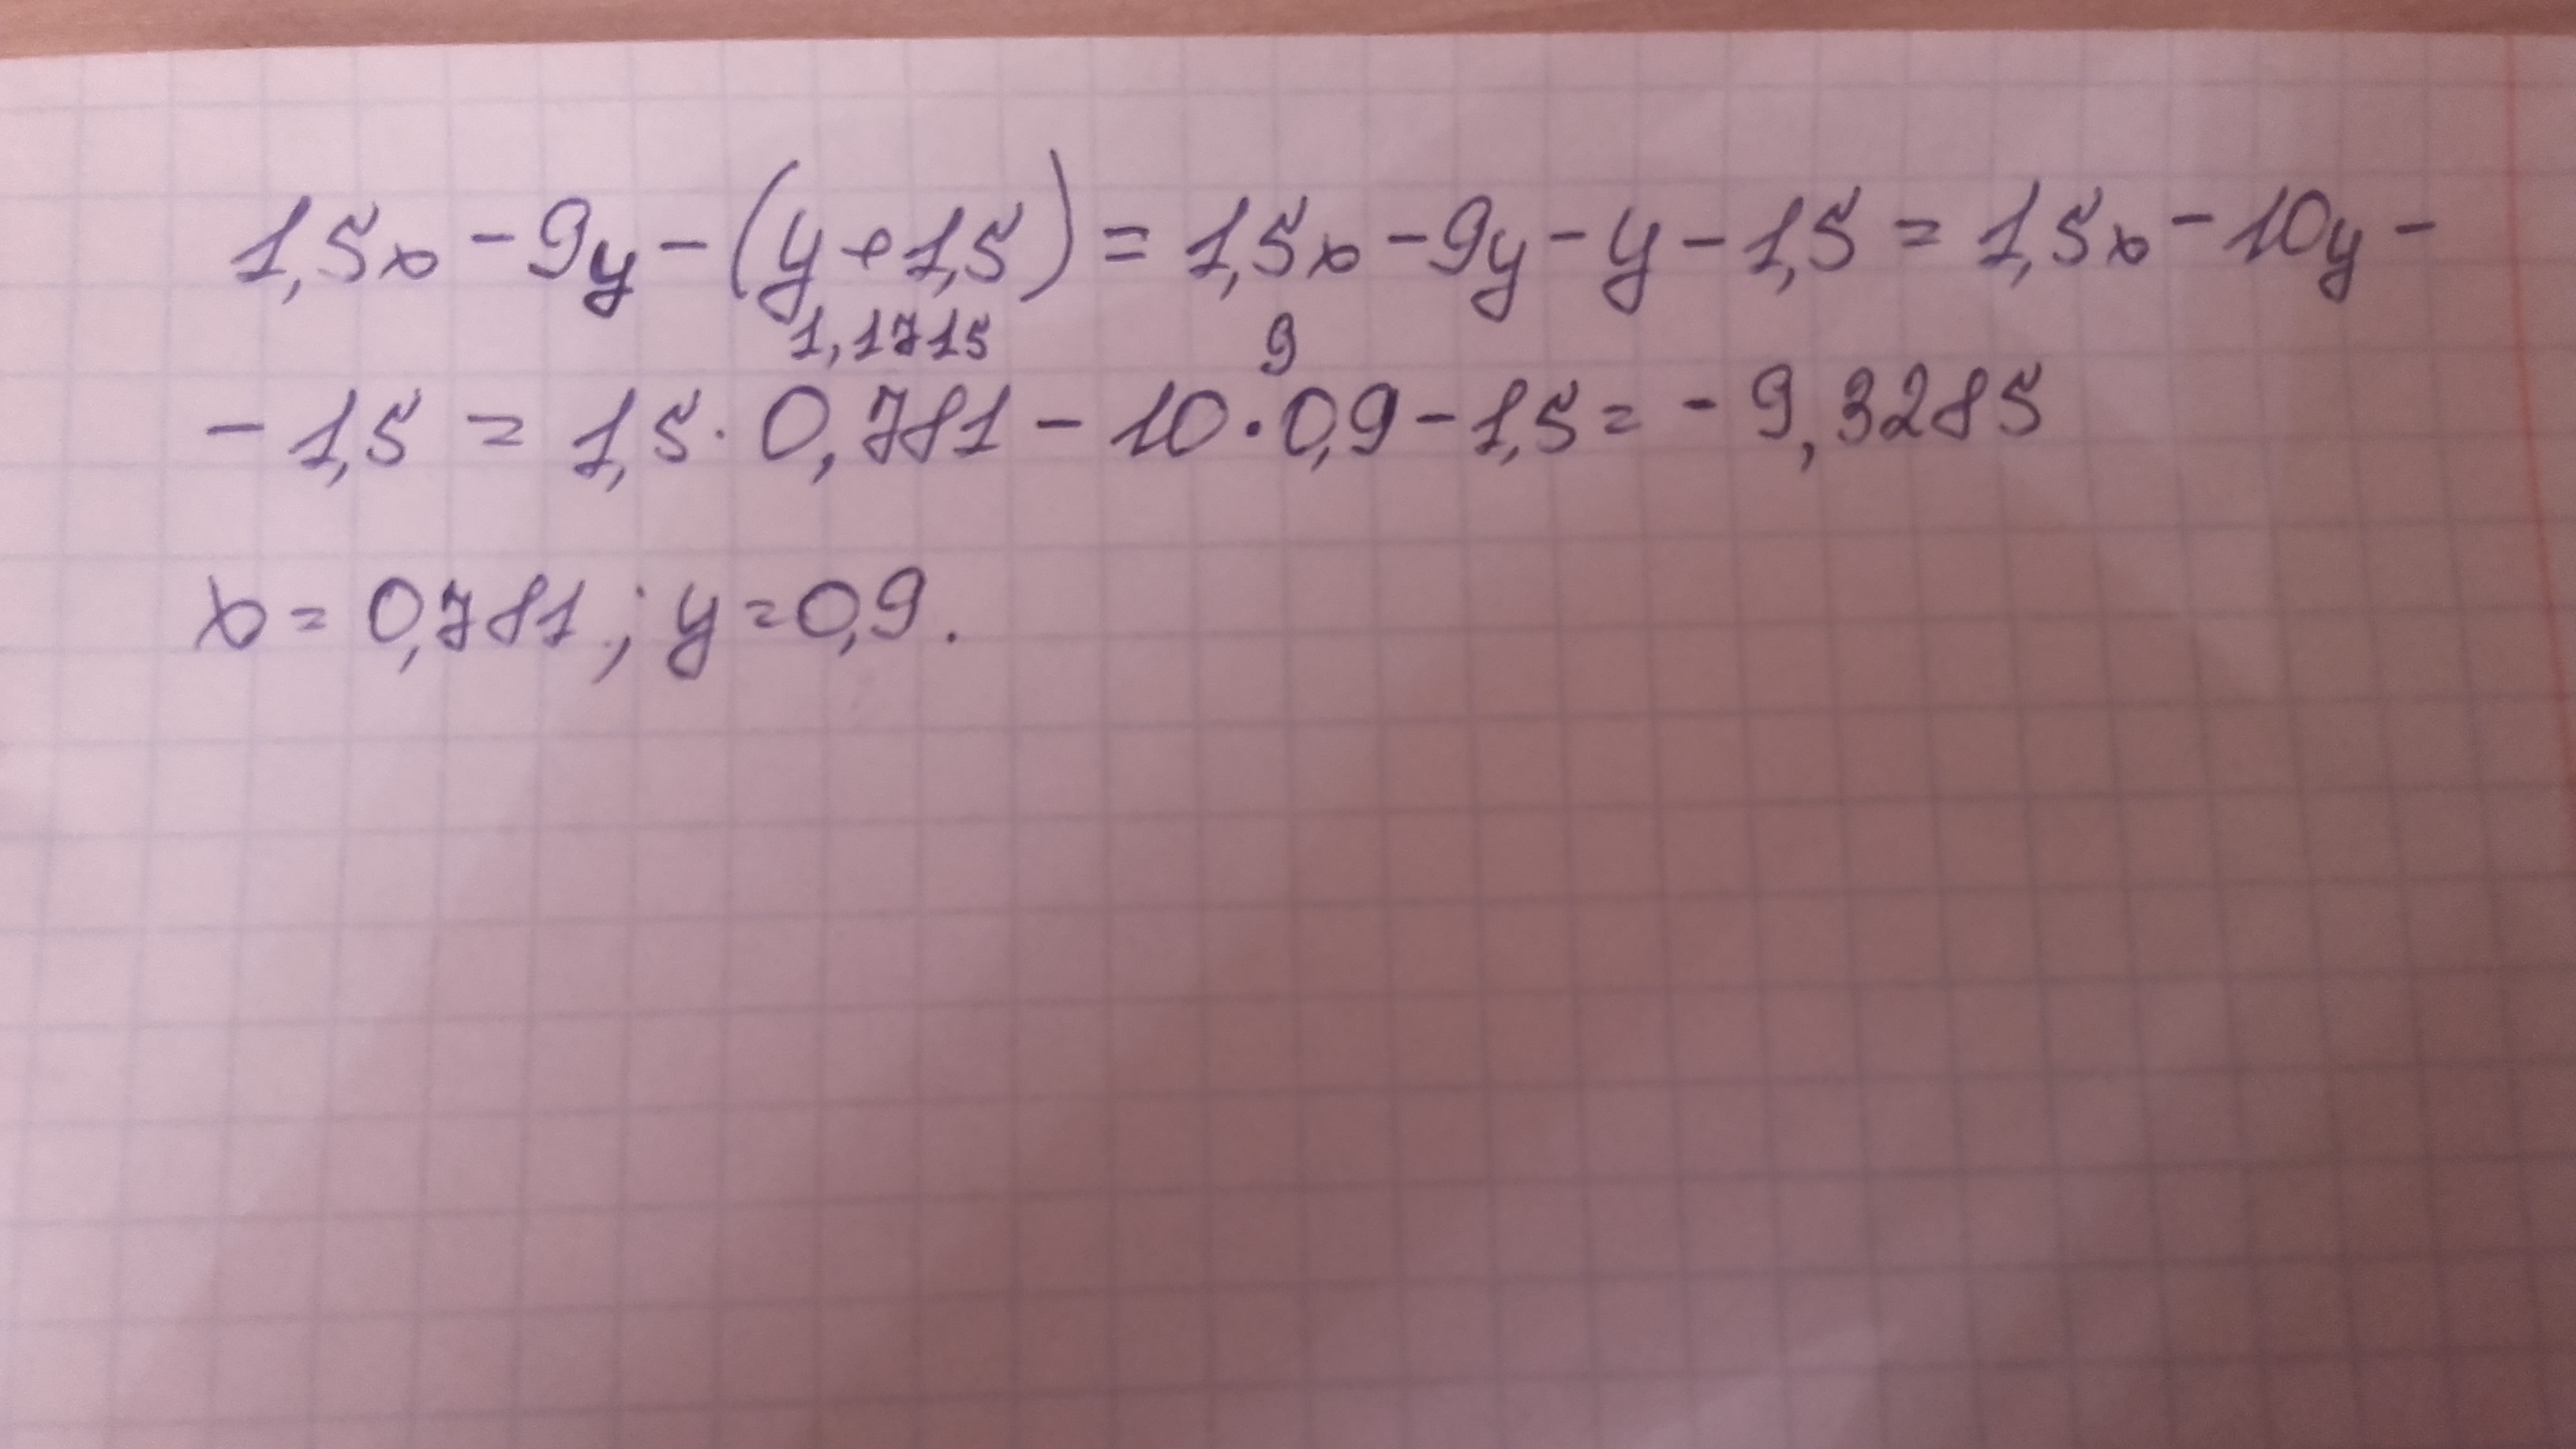 1,5x - 9y - (y + 1,5) = 1,5x - 9y - y - 1,5 = 1,5x - 10y -
1,1715 9
- 1,5 = 1,5 · 0,781 - 10 · 0,9 - 1,5 = - 9,3285
x = 0,781 ; y = 0,9 .